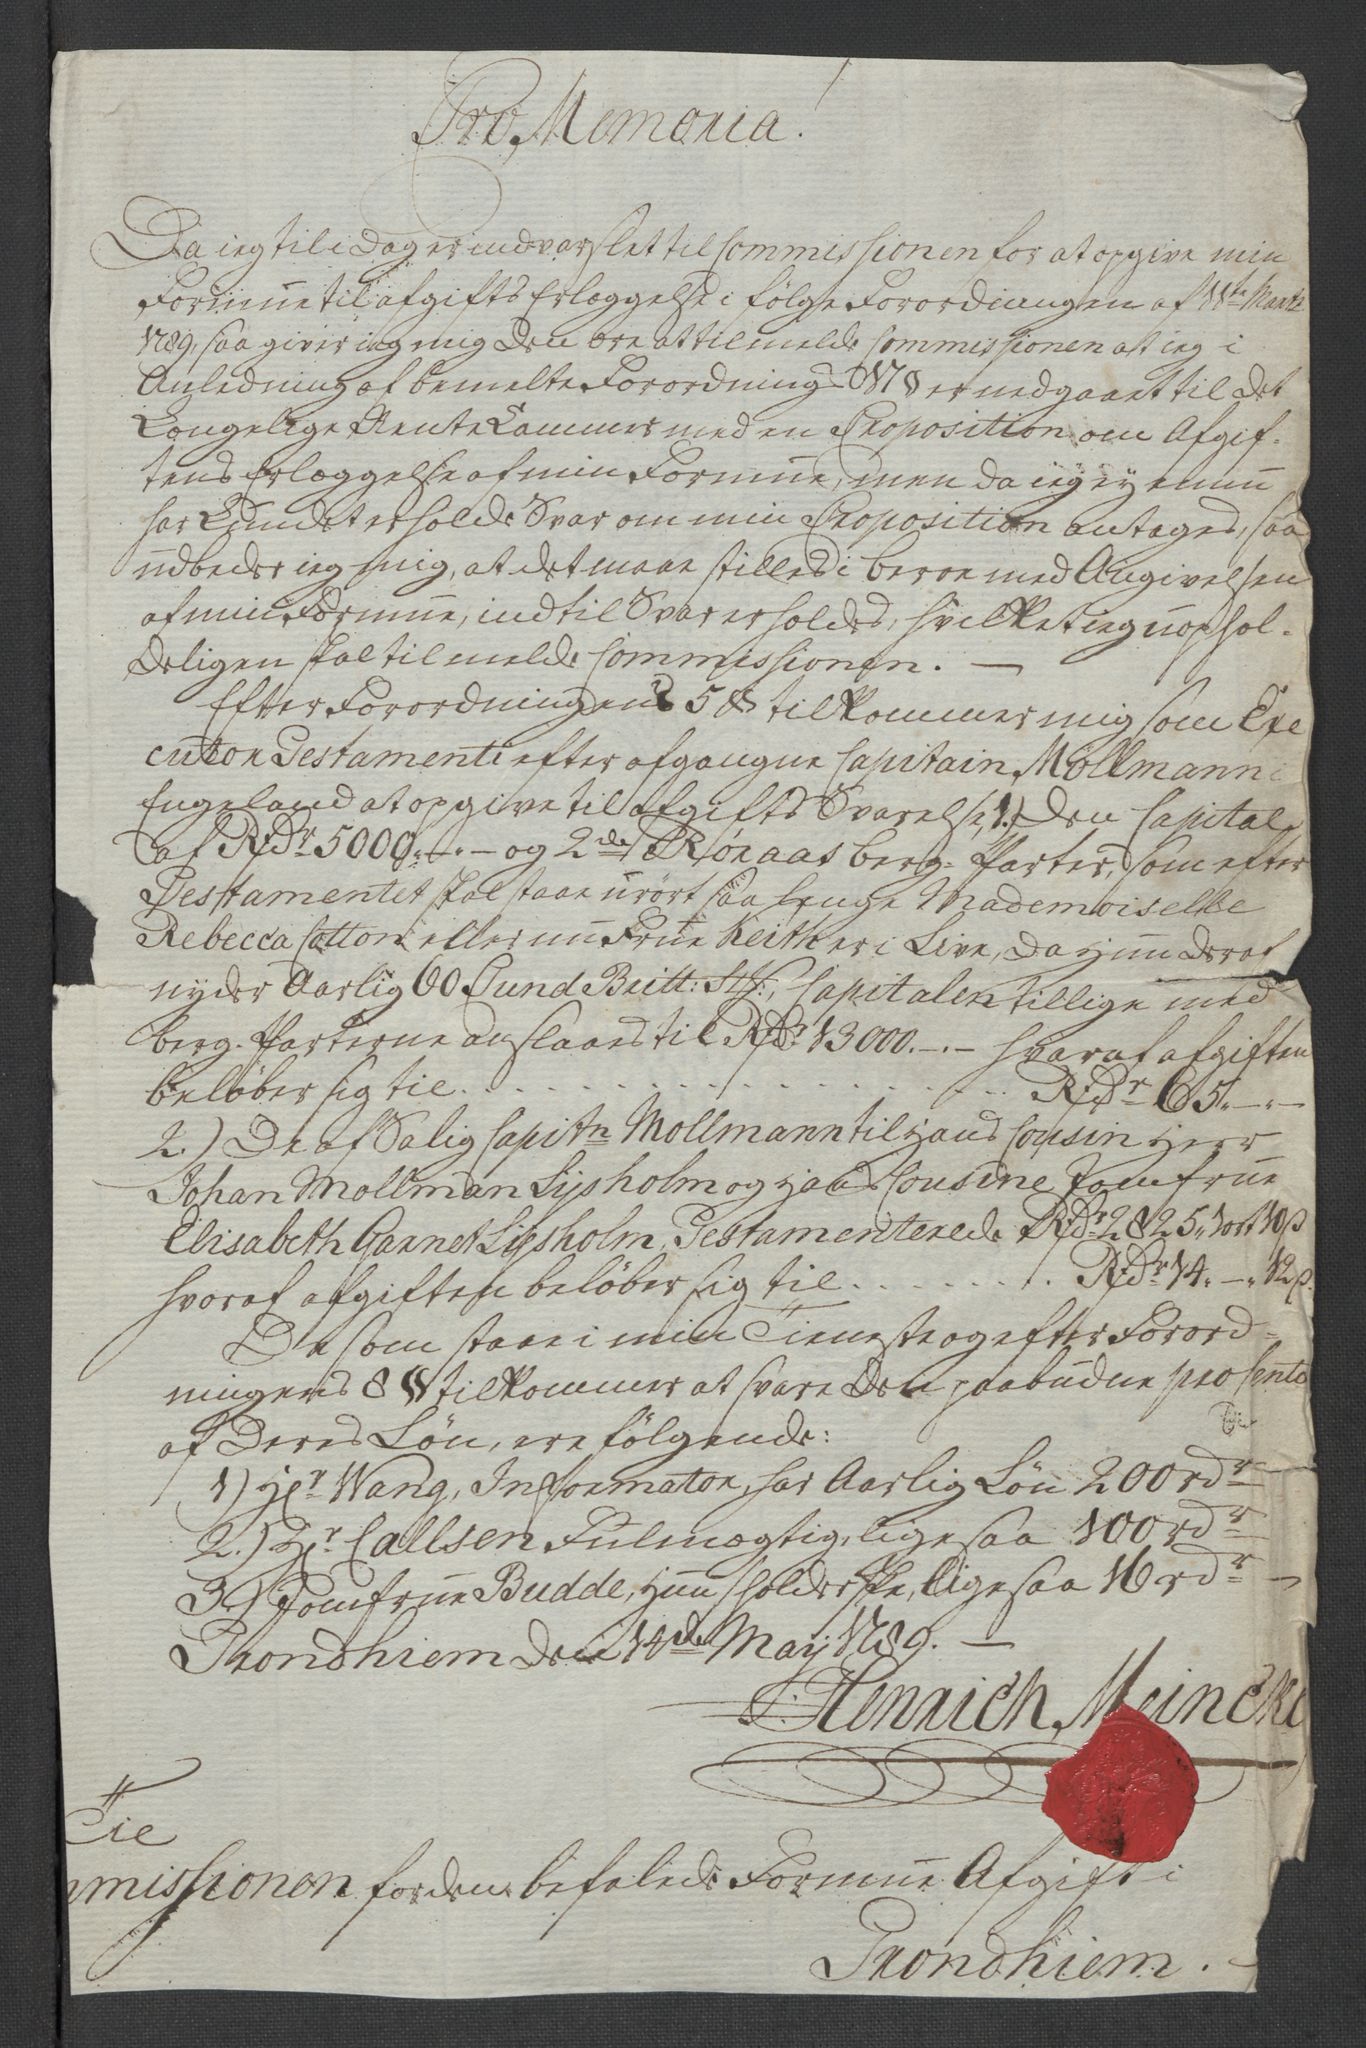 Pro Memoria!
Da ieg til i Dag er indvarslet til Commissionen for at opgive min
Formue til afgifts Erlæggelse i følge Forordningen af 11te Martz
1789, saa giver ieg mig den ære at tilmelde Commissionen at ieg i
Anledning af bemelte Forordnings 17 § er nedgaaet til det
Kongelige Rente Kammer med en Proposition om Afgif-
tens Erlæggelse af min Formue, men da ieg ey ennu
har kundet erholde Svar om min Proposition antages, saa
udbeder ieg mig, at det maae stilles i beroe med Angivelsen
af min Formue, indtil Svar erholdes, hvilket ieg uophol-
deligen skal tilmelde Commissionen. —
Efter Forordningens 5 § tilkommer mig som Exe
cutor Testamenti efter afgangne Capitain Mollmann i
Engeland at opgive til afgifts Svarelse, 1.) Den Capital
af Rdr 5000.-.- og 2de Røraas berg-Parter, som efter
Testamentet skal staae urørt saa længe Mademoiselle
Rebecca Cotton eller nu Frue Keith er i Live, da hun deraf
nyder Aarlig 60 Pund Britt: St:, Capitalen tillige med
berg-Parterne anslaaes til Rdr 13000.-.- hvoraf afgiften
beløber sig til . . . . . . . . . . Rdr 65.-.-
2.) De af Salig Capitn Mollmann til hans Cousin Herr
Johan Mollman Lysholm og hans Cousine Jomfrue
Elisabeth Garnet Lysholm, Testamenterede Rdr 2825, 1ort 10ß
hvoraf afgiften beløber sig til . . . . . . . Rdr 14.-.12ß.
De som staae i min Tieneste og efter Forord-
ningens 8 § tilkommer at svare den paabudne pro Cento
af Deres Løn, ere følgende:
1) Hr Wang, Informator, har Aarlig Løn 200 rdr
2.) Hr Callsen Fulmægtig, lige saa 100 rdr
3.) Jomfrue Budde, Huusholderske, lige saa 16 rdr —
Trondhiem den 14de May 1789. —
Henrich Meincke
Til
mmissionen for den befalede Formue Afgift i
Trondhiem.